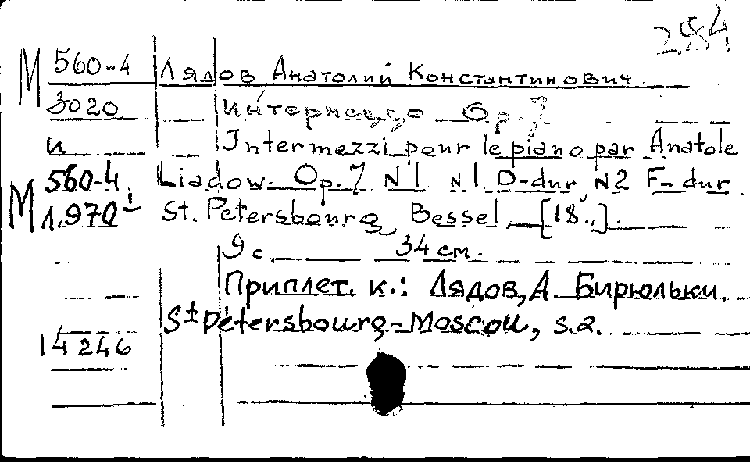 254
М 560-4 Лядов Анатолий Константинович.
3020 Интермеццо Op. 7
и Intermezzi pour le piano par Anatole
М 560-4 Liadow. Op. 7 N1 N1 D-dur N2 F-dur
1.970¹ St. Petersbourg, Bessel, [18..].
9 с. 34 см.
Приплет. к.: Лядов, А. Бирюльки.
St Pétersbourg-Moscou, s.a.
14246